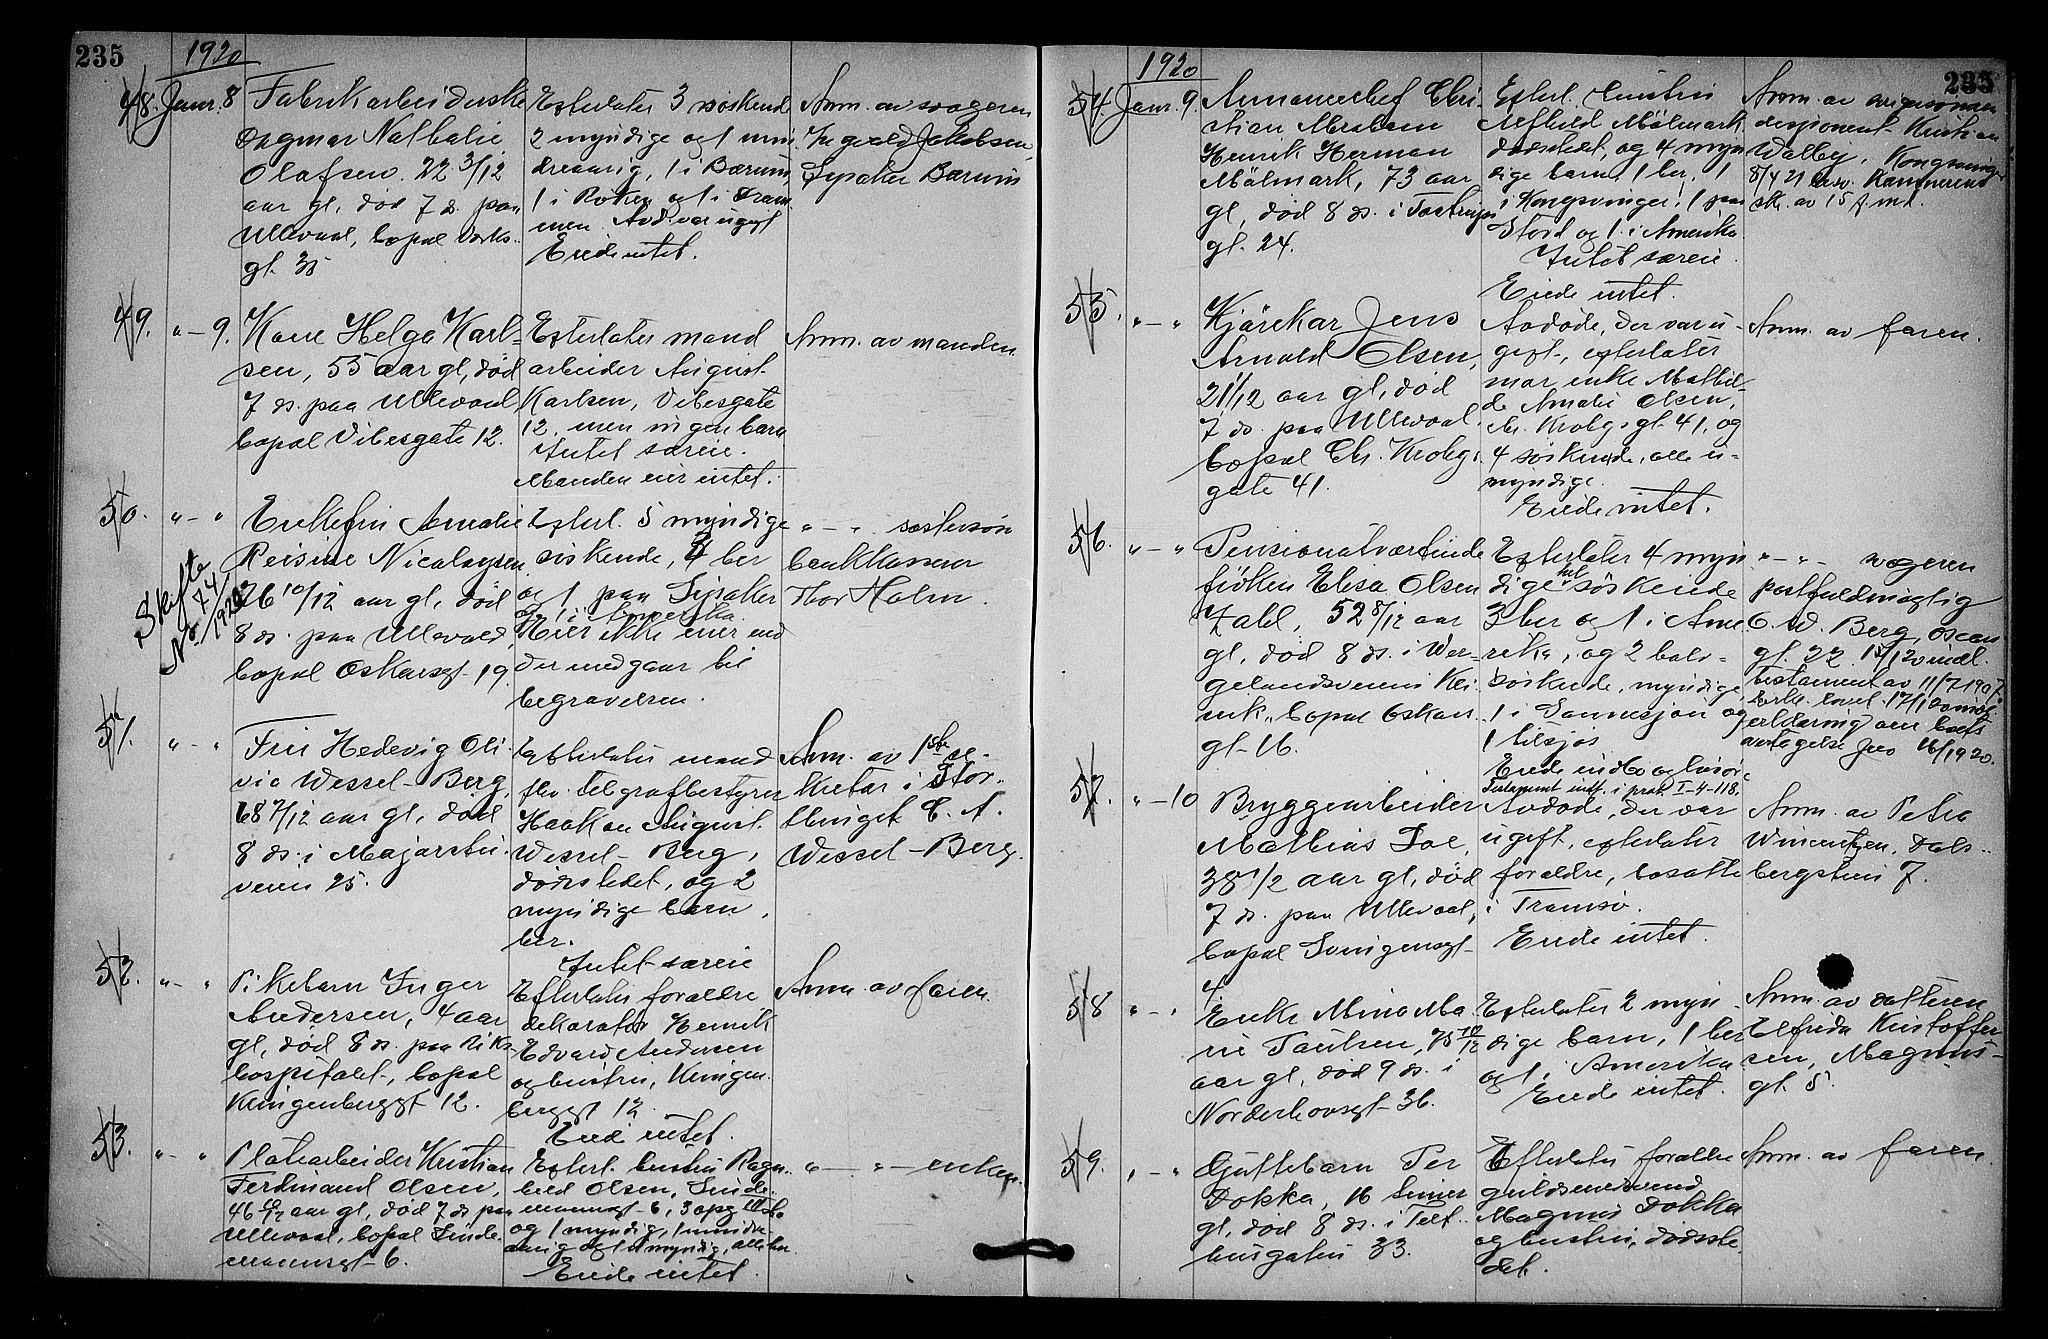 235
1920
48. Janr. 8
Fabrikarbeiderske
Dagmar Nathalie
Olafsen. 22 3/12
aar gl, død 7 ds. paa
Ullevaal, bopæl
gt. 35
Efterlater 3 søskende
2 myndige og 1 min
dreaarig, 1 i Bærum,
1 i Røken og 1 i Dram
men. Avd. var ugift
Eiede intet.
Anm. av svogeren
Ingvald Jakobsen,
Lysaker Bærum
49. " — 9.
Kone Helga Karl-
sen, 55 aar gl, død
7 ds. paa Ullevaal
bopæl Vibesgate 12.
Efterlater mand
arbeider August
Karlsen, Vibesgate
12, men ingen barn
Intet særeie.
Manden eier intet.
Anm. av manden
50. " — "
Skifte
No 74/1920
Enkefru Amalie
Reisine Nicolaysen
76 10/12 aar gl, død
8 ds. paa Ullevaal,
bopæl Oskarsgt 19
Efterl. 5 myndige
søskende, 3 her
og 1 paa Lysaker
og 1 i Amerika.
Eier ikke mer end
der medgaar til
begravelsen.
" — " søstersøn
bankkasserer
Thor Holm.
51. " — "
Fru Hedevig Oli-
via Wessel-Berg,
68 7/12 aar gl, død
8 ds. i Majorstu-
veien 25.
Efterlater mand
fhv. telegrafbestyrer
Haakon August
Wessel-Berg,
dødsstedet, og 2
myndige barn,
her.
Intet særeie
Anm. av 1ste se-
kretær i Stor-
thinget C. A.
Wessel-Berg.
52. " — "
Pikebarn Inger
Andersen, 4 aar
gl, død 8 ds. paa Riks-
hospitalet, bopæl
Klingenberggt 12.
Efterlater forældre
dekoratør Henrik
Edvard Andersen
og hustru, Klingen-
berggt 12
Eied intet.
Anm. av faren
53. " — "
Platearbeider Kristian
Ferdinand Olsen,
46 aar gl, død 7 ds paa
Ullevaal, bopæl Linde-
mannsgt 6.
Efterl. hustru Ragn-
hild Olsen, Linde-
mannsgt 6, 3
og 1 myndig, 1 mindre
aarig og 1 myndig, alle her
Eiede intet.
" — " — enken.
1920
235
54. Janr. 9.
Annoncechef Chri-
stian Abraham
Henrik Herman
Mälmark, 73 aar
gl, død 8 ds. i
gt. 24.
Efterl. hustru
Mälmark
dødsstedet, og 4 myn
dige barn, 1 her, 1
i Kongsvinger, 1 paa
Stord og 1 i Amerika
Intet særeie.
Eiede intet.
Anm. av svigersønnen
disponent Kristian
Walby, Kongsvinger
8/4 21
skr. av 15 s md.
55. " — "
Kjørekar Jens
Arnold Olsen,
21 1/12 aar gl, død
7 ds. paa Ullevaal,
bopæl Chr. Krohgs
gate 41.
Avdøde, der var u-
gift, efterlater
mor, enke Mathil-
de Amalie Olsen,
Chr. Krohgs gt 41, og
4 søskende, alle u-
myndige.
Eiede intet.
Anm. av faren.
56. " — "
Pensionatværtinde
frøken Elisa Olsen
Zahl, 52 8/12 aar
gl, død 8 ds. i Wer-
gelandsveiens kli-
nik, bopæl Oskars-
gt 16.
Efterlater 4 myn
dige hel søskende
3 her og 1 i Ame
rika, og 2 halv-
søskende, myndige,
1 i Sannesjøen og
1 tilsjøs
Eiede indbo og løsøre
Testament indf. i prot. I-4-118.
" — " — svogeren
postfuldmægtig
C. W. Berg, Oscars
gt. 22. 15/1 20 indl.
testament av 11/7 1907
erklæring om boets
overtagelse 16/1 920.
57. " — 10
Bryggearbeider
Mathias Loe,
38 1/2 aar gl, død
7 ds. paa Ullevaal,
bopæl
4.
Avdøde, der var
ugift, efterlater
forældre, bosatte
i Tromsø.
Eiede intet.
Anm. av Petra
Wincentzen, Dals-
bergstien 7.
58 " — "
Enke Mina Ma-
rie Paulsen, 75 10/12
aar gl, død 9 ds. i
Norderhovsgt 36.
Efterlater 2 myn
dige barn, 1 her
og 1 i Amerika
Eiede intet.
Anm. av datteren
Elfrida Kristoffer-
sen, Magnus-
gt. 5.
59. " — "
Guttebarn Per
Dokka, 16 timer
gl, død 8 ds. i Telt-
husgaten 33.
Efterlater forældre
guldsmedsvend
Magnus Dokka
og hustru, dødsste-
det.
Anm. av faren.